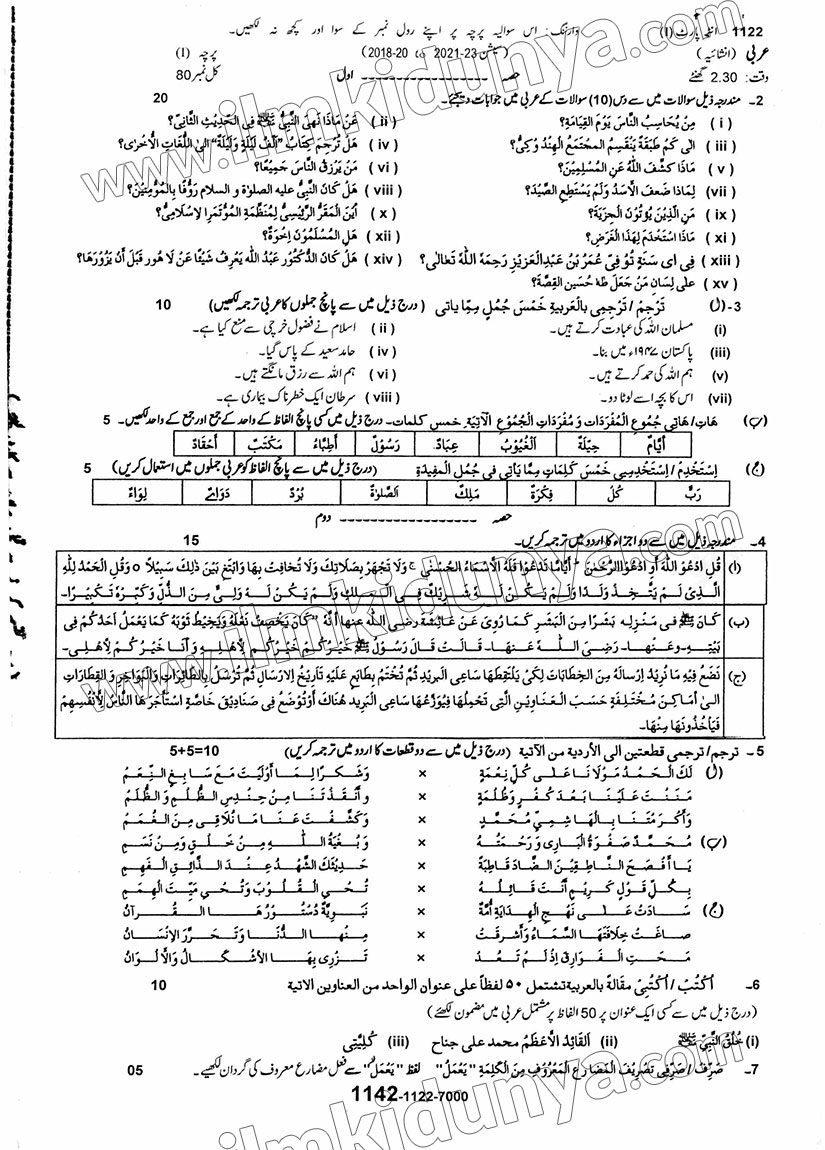 1122 انٹر پارٹ (I) وارننگ: اس سوالیہ پرچہ پر اپنے رول نمبر کے سوا اور کچھ نہ لکھیں۔
عربی (انشائیہ) (سیشن 23-2021 تا 20-2018) پرچہ (I)
وقت: 2.30 گھنٹے حصہ اول کل نمبر 80
2- مندرجہ ذیل سوالات میں سے دس (10) سوالات کے عربی میں جوابات دیجئے۔ 20
(i) مِنْ يُحَاسِبُ النَّاسَ يَوْمَ الْقِيَامَةِ؟ (ii) عَنْ مَاذَا نَهَى النَّبِيُّ ﷺ فِى الْحَدِيْثِ الثَّانِيْ؟
(iii) الى كَمْ طَبَقَةً يَنْقَسِمُ الْمجتمعُ الْهِنْدُوْكِيُّ؟ (iv) هَلْ تُرْجِمَ كِتَابُ "اَلْف لَيْلَةٍ وَلَيْلَةٌ" الىٰ اللُّغَاتِ الْأُخْرٰى؟
(v) مَاذَا كَشَّفَ اللّٰهُ عَنِ الْمُسْلِمِيْنَ؟ (vi) مَنْ يَرْزُقُ النَّاسَ جَمِيْعًا؟
(vii) لِمَاذَا ضَعفَ الْأَسَدُ وَلَمْ يَسْتَطِعِ الصَّيْدَ؟ (viii) هَلْ كَانَ النَّبِيُّ عليه الصلوٰة و السلام رَوُفًا بِالْمُؤْمِنِيْنَ؟
(ix) مَنِ الَّذِيْنَ يُؤْتُوْنَ الْجِزْيَةَ؟ (x) أَيْنَ الْمَقَرُّ الرَّئِيْسِيُّ لِمُنَظَّمَةِ الْمُؤْتَمَرِ الْاِسْلَامِيُّ؟
(xi) مَاذَا اسْتَخْدَمَ لِهٰذَا الْغَرَضِ؟ (xii) هَلِ الْمُسْلِمُوْنَ اِخْوَةٌ؟
(xiii) فِى اى سَنَةٍ تُوُفِّىَ عُمَرُ بْنُ عَبْدِالْعَزِيْزِ رَحِمَهُ اللّٰهُ تَعَالٰى؟ (xiv) هَلْ كَانَ الدُّكْتُوْر عَبْدُ اللّٰهِ يَعْرِفُ شَيْئًا عَنْ لَا هور قَبْلَ أَنْ يَزُوْرَهَا؟
(xv) على لِسَانِ مَنْ جَعَلَ طٰهٰ حُسَيْن الْقِصَّةَ؟
3-(ل) تَرْجِمْ / تَرْجِمِى بِالْعَرَبِيةِ خَمْسَ جُمَلٍ مِمَّا ياتى (درج ذیل میں سے پانچ جملوں کا عربی ترجمہ لکھیں) 10
(i) مسلمان اللہ کی عبادت کرتے ہیں۔ (ii) اسلام نے فضول خرچی سے منع کیا ہے۔
(iii) پاکستان ۱۹۴۷ء میں بنا۔ (iv) حامد سعید کے پاس گیا۔
(v) ہم اللہ کی حمد کرتے ہیں۔ (vi) ہم اللہ سے رزق مانگتے ہیں۔
(vii) اس کا بچہ اسے لوٹا دو۔ (viii) سرطان ایک خطرناک بیماری ہے۔
(ب) هَاتِ/ هَاتِى جُمُوعَ الْمُفْرَدَاتِ وَ مُفْرَدَاتِ الْجُمُوْعِ الْآتِيَةِ. خمس كلمات۔ درج ذیل میں کسی پانچ الفاظ کے واحد کے جمع اور جمع کے واحد لکھیں۔ 5
أَيَّامٌ حِيْلَةٌ اَلْغُيُوْبُ عِبَادٌ رَسُوْلٌ أَطِبَّاءُ مَكْتَبٌ أَحْقَادٌ
(ج) اِسْتَخْدِمْ/ اِسْتَخْدِمِىْ خَمْسَ كَلِمَاتٍ مِمَّا يَاتِى فى جُمَلِ الْمُفِيْدَةِ (درج ذیل میں سے پانچ الفاظ کو عربی جملوں میں استعمال کریں) 5
رَبٌّ كُلٌّ فِكْرَةٌ مَلِكٌ اَلصَّلٰوةُ بُرْدٌ دَوَاءٌ لِوَاءٌ
حصہ دوم
4- مندرجہ ذیل میں سے دو اجزاء کا اردو میں ترجمہ کریں۔ 15
(ا) قُلِ ادْعُوا اللّٰهَ أَوِ ادْعُوا الرَّحْمٰنَ ۭ أَيًّامَّا تَدْعُوْا فَلَهُ الْأَسْمَاءُ الْحُسْنٰى ۚ وَلَا تَجْهَرْ بِصَلَاتِكَ وَلَا تُخَافِتْ بِهَا وَابْتَغِ بَيْنَ ذٰلِكَ سَبِيْلًا ٥ وَقُلِ الْحَمْدُ لِلّٰهِ
الَّذِىْ لَمْ يَتَّخِذْ وَلَدًا وَلَمْ يَكُنْ لَّهُ شَرِيْكٌ فِى الْمُلْكِ وَلَمْ يَكُنْ لَهُ وَلِىٌّ مِنَ الذُّلِّ وَكَبِّرْهُ تَكْبِيْرًا۔
(ب) كَانَ ﷺ فى مَنْزِلِهِ بَشَرًا مِنَ الْبَشَرِ كَمَا رُوِىَ عَنْ عَائِشَةَ رضى اللّٰه عنها أَنَّهُ "كَانَ يَخْصِفُ نَعْلَهُ وَيَخِيْطُ ثَوْبَهُ كَمَا يَعْمَلُ أَحَدُكُمْ فِى
بَيْتِهِ۔ وَعَنْهَا۔ رَضِىَ اللّٰهُ عَنْهَا۔ قَالَتْ قَالَ رَسُوْلُ ﷺ خَيْرُكُمْ خَيْرُكُمْ لِاَهْلِهِ وَأَنَا خَيْرُكُمْ لِاَهْلِى۔
(ج) نَضَعُ فِيْهِ مَا نُرِيْدُ اِرْسَالَهُ مِنَ الْخِطَابَاتِ لِكَىْ يَلْتَقِطَهَا سَاعِى الْبَرِيْدِ ثُمَّ تُخْتَمُ بِطَابَعٍ عَلَيْهِ تَارِيْخُ الْاِرْسَالِ ثُمَّ تُرْسَلُ بِالطَّائِرَاتِ وَالْبَوَاخِرِ وَ الْقِطَارَاتِ
الىٰ أَمَاكِنَ مُخْتَلِفَةٍ حَسَبَ الْعَنَاوِيْنِ الَّتِى تَحْمِلُهَا فَيُوَزِّعُهَا سَاعِى الْبَرِيْدِ هُنَاكَ أَوْ تُوْضَعُ فِى صَنَادِيْقَ خَاصَّةٍ اسْتَأْجَرَهَا النَّاسُ لِأَنْفُسِهِمْ
فَيَأْخُذُوْنَهَا مِنْهَا۔
5- ترجم/ ترجمى قطعتين الى الأردية من الآتية (درج ذیل میں سے دو قطعات کا اردو میں ترجمہ کریں) 5+5=10
(ل) لَكَ الْحَمْدُ مَوْلَانَا عَلٰى كُلِّ نِعْمَةٍ × وَشُكْرًا لِمَا أَوْلَيْتَ مَعَ سَابِغِ النِّعَمْ
مَنَنْتَ عَلَيْنَا بَعْدَ كُفْرٍ وَظُلْمَةٍ × وَأَنْقَذْتَنَا مِنْ حِنْدِسِ الظُّلْمِ وَالظُّلَمْ
وَأَكْرَمْتَنَا بِالْهَاشِمِيِّ مُحَمَّدٍ × وَكَشَّفْتَ عَنَّا مَا نُلَاقِى مِنَ الْغُمَمْ
(ب) مُحَمَّدٌ صَفْوَةُ الْبَارِى وَرَحْمَتُهُ × وَبُغْيَةُ اللّٰهِ مِنْ خَلْقٍ وَمِنْ نَسَمِ
يَا أَفْصَحَ النَّاطِقِيْنَ الضَّادَ قَاطِبَةً × حَدِيْثُكَ الشَّهْدُ عِنْدَ الذَّائِقِ الْفَهِمِ
بِكُلِّ قَوْلٍ كَرِيْمٍ أَنْتَ قَائِلُهُ × تُحْيِى الْقُلُوْبَ وَتُحْيِ مَيِّتَ الْهِمَمِ
(ج) سَادَتْ عَلٰى نَهْجِ الْهِدَايَةِ أُمَّةٌ × نَبَوِيَّةٌ دُسْتُوْرُهَا الْقُرْآنُ
صَاغَتْ خِلَافَتَهَا السَّمَاءُ وَأَشْرَقَتْ × مِنْهَا الدُّنَا وَتَحَرَّرَ الْاِنْسَانُ
مَحَتِ الْفَوَارِقَ اِذْ لَمْ تَعُدْ × تَزْرِى بِهَا الْأَشْكَالُ وَالْأَلْوَانُ
6- اُكْتُبْ / اُكْتُبِىْ مَقَالَةً بالعربية تشتمل ۵۰ لفظاً على عنوان الواحد من العناوين الاتية 10
(درج ذیل میں سے کسی ایک عنوان پر 50 الفاظ پر مشتمل عربی میں مضمون لکھئے)
(i) خُلُقُ النَّبِيِّ ﷺ (ii) اَلْقَائِدُ الْأَعْظَمُ محمد علی جناح (iii) كُلِّيَّتِى
7- صَرِّفْ / صَرِّفِى تَصْرِيْفَ الْمُضَارِعِ الْمَعْرُوْفِ مِنَ الْكَلِمَةِ "يَعْمَلُ" لفظ "يَعْمَلُ" سے فعل مضارع معروف کی گردان لکھیے۔ 05
1142-1122-7000
www.ilmkidunya.com